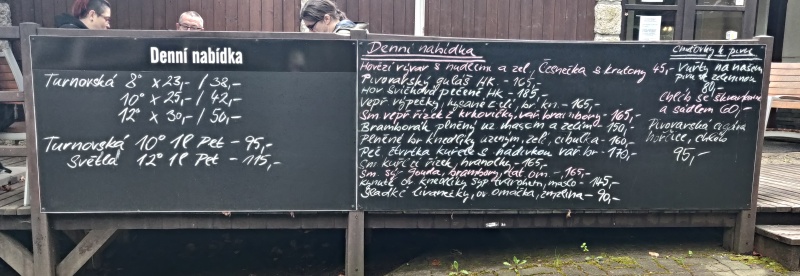 Denní nabídka
Turnovská 8° x 23,- / 38,-
10° x 25,- / 42,-
12° x 30,- / 50,-
Turnovská 10° 1l Pet - 95,-
Světlá 12° 1l Pet - 115,-
Denní nabídka
Hovězí vývar s nudlemi a zel, Česnečka s krutony 45,-
Pivovarský guláš HK - 165,-
Hov svíčková pečeně HK - 185,-
Vepř výpečky, kysané zelí, br. kn. - 165,-
Sm vepř řízek z krkovičky, vař. brambory - 165,-
Bramborák plněný uz masem a zelím - 150,-
Plněné br knedlíky uzeným, zelí, cibulka - 160,-
Peč čtvrtka kuřete s nádivkou vař br - 170,-
Sm kuřecí řízek, hranolky - 165,-
Sm. sýr gouda, brambory, tat om -, 165,-
Kynuté ov knedlíky syp tvarohem, máslo - 145,-
Sladké lívanečky, ov omáčka, zmrzlina - 90,-
Chuťovky k pivu
- Vuřty na našem
pivu se zeleninou
80,-
Chléb se škvarkama
a sádlem 60,-
Pivovarská cigára
hořčice, chléb
95,-